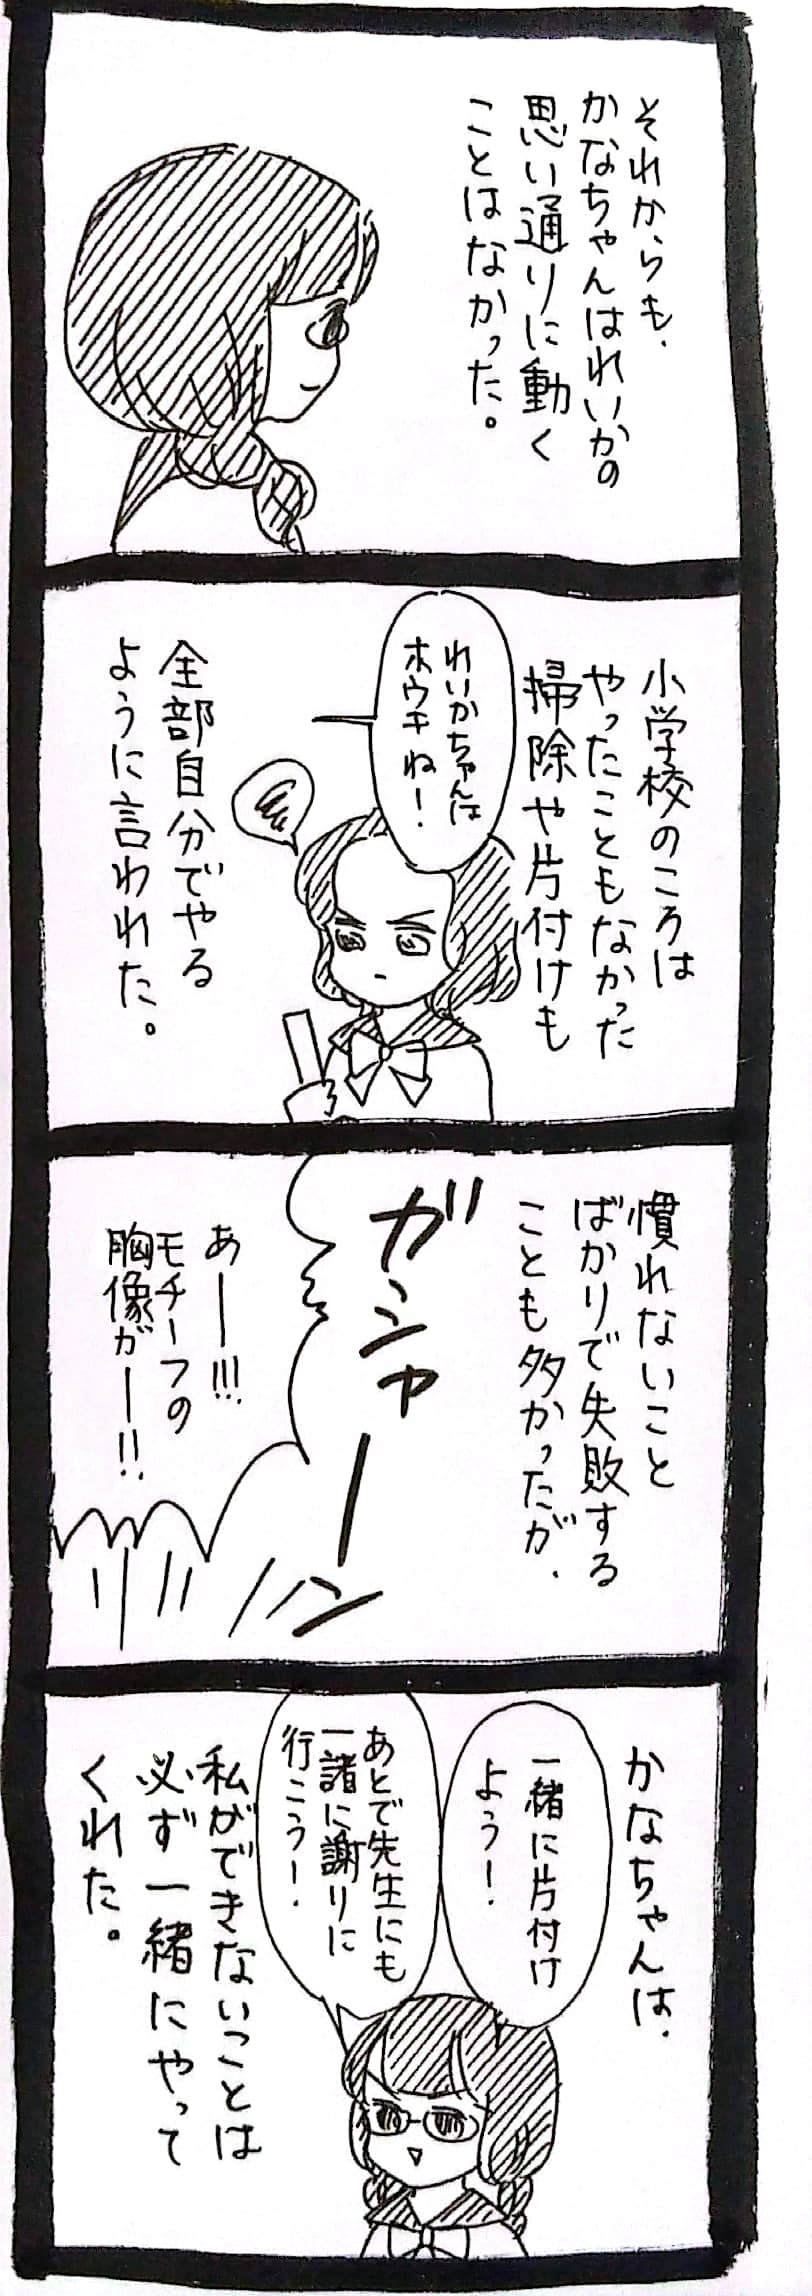 それからも、
かなちゃんはれいかの
思い通りに動く
ことはなかった。
小学校のころは
やったこともなかった
掃除や片付けも
れいかちゃんは
ホウキね!
全部自分でやる
ように言われた。
慣れないこと
ばかりで失敗する
ことも多かったが、
ガシャーン
あー!!!
モチーフの
胸像がー!!
かなちゃんは、
一緒に片付け
よう!
あとで先生にも
一諸に謝りに
行こう!
私ができないことは
必ず一緒にやって
くれた。